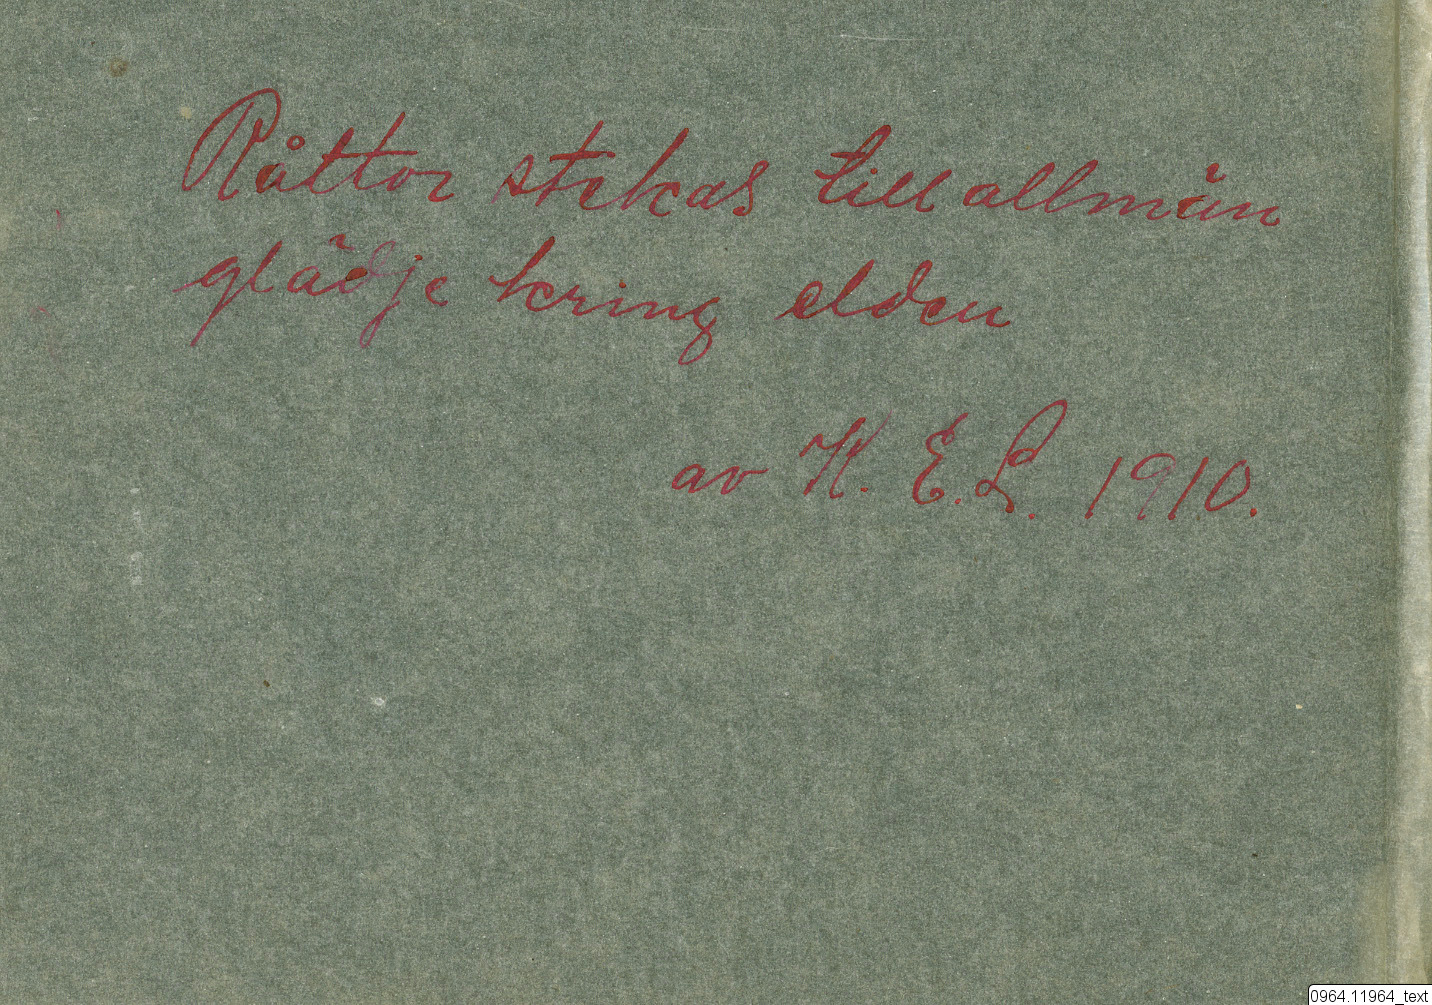 Råttor stekas till allmän
glädje kring elden
av K. E. L. 1910.
0964.11964_text